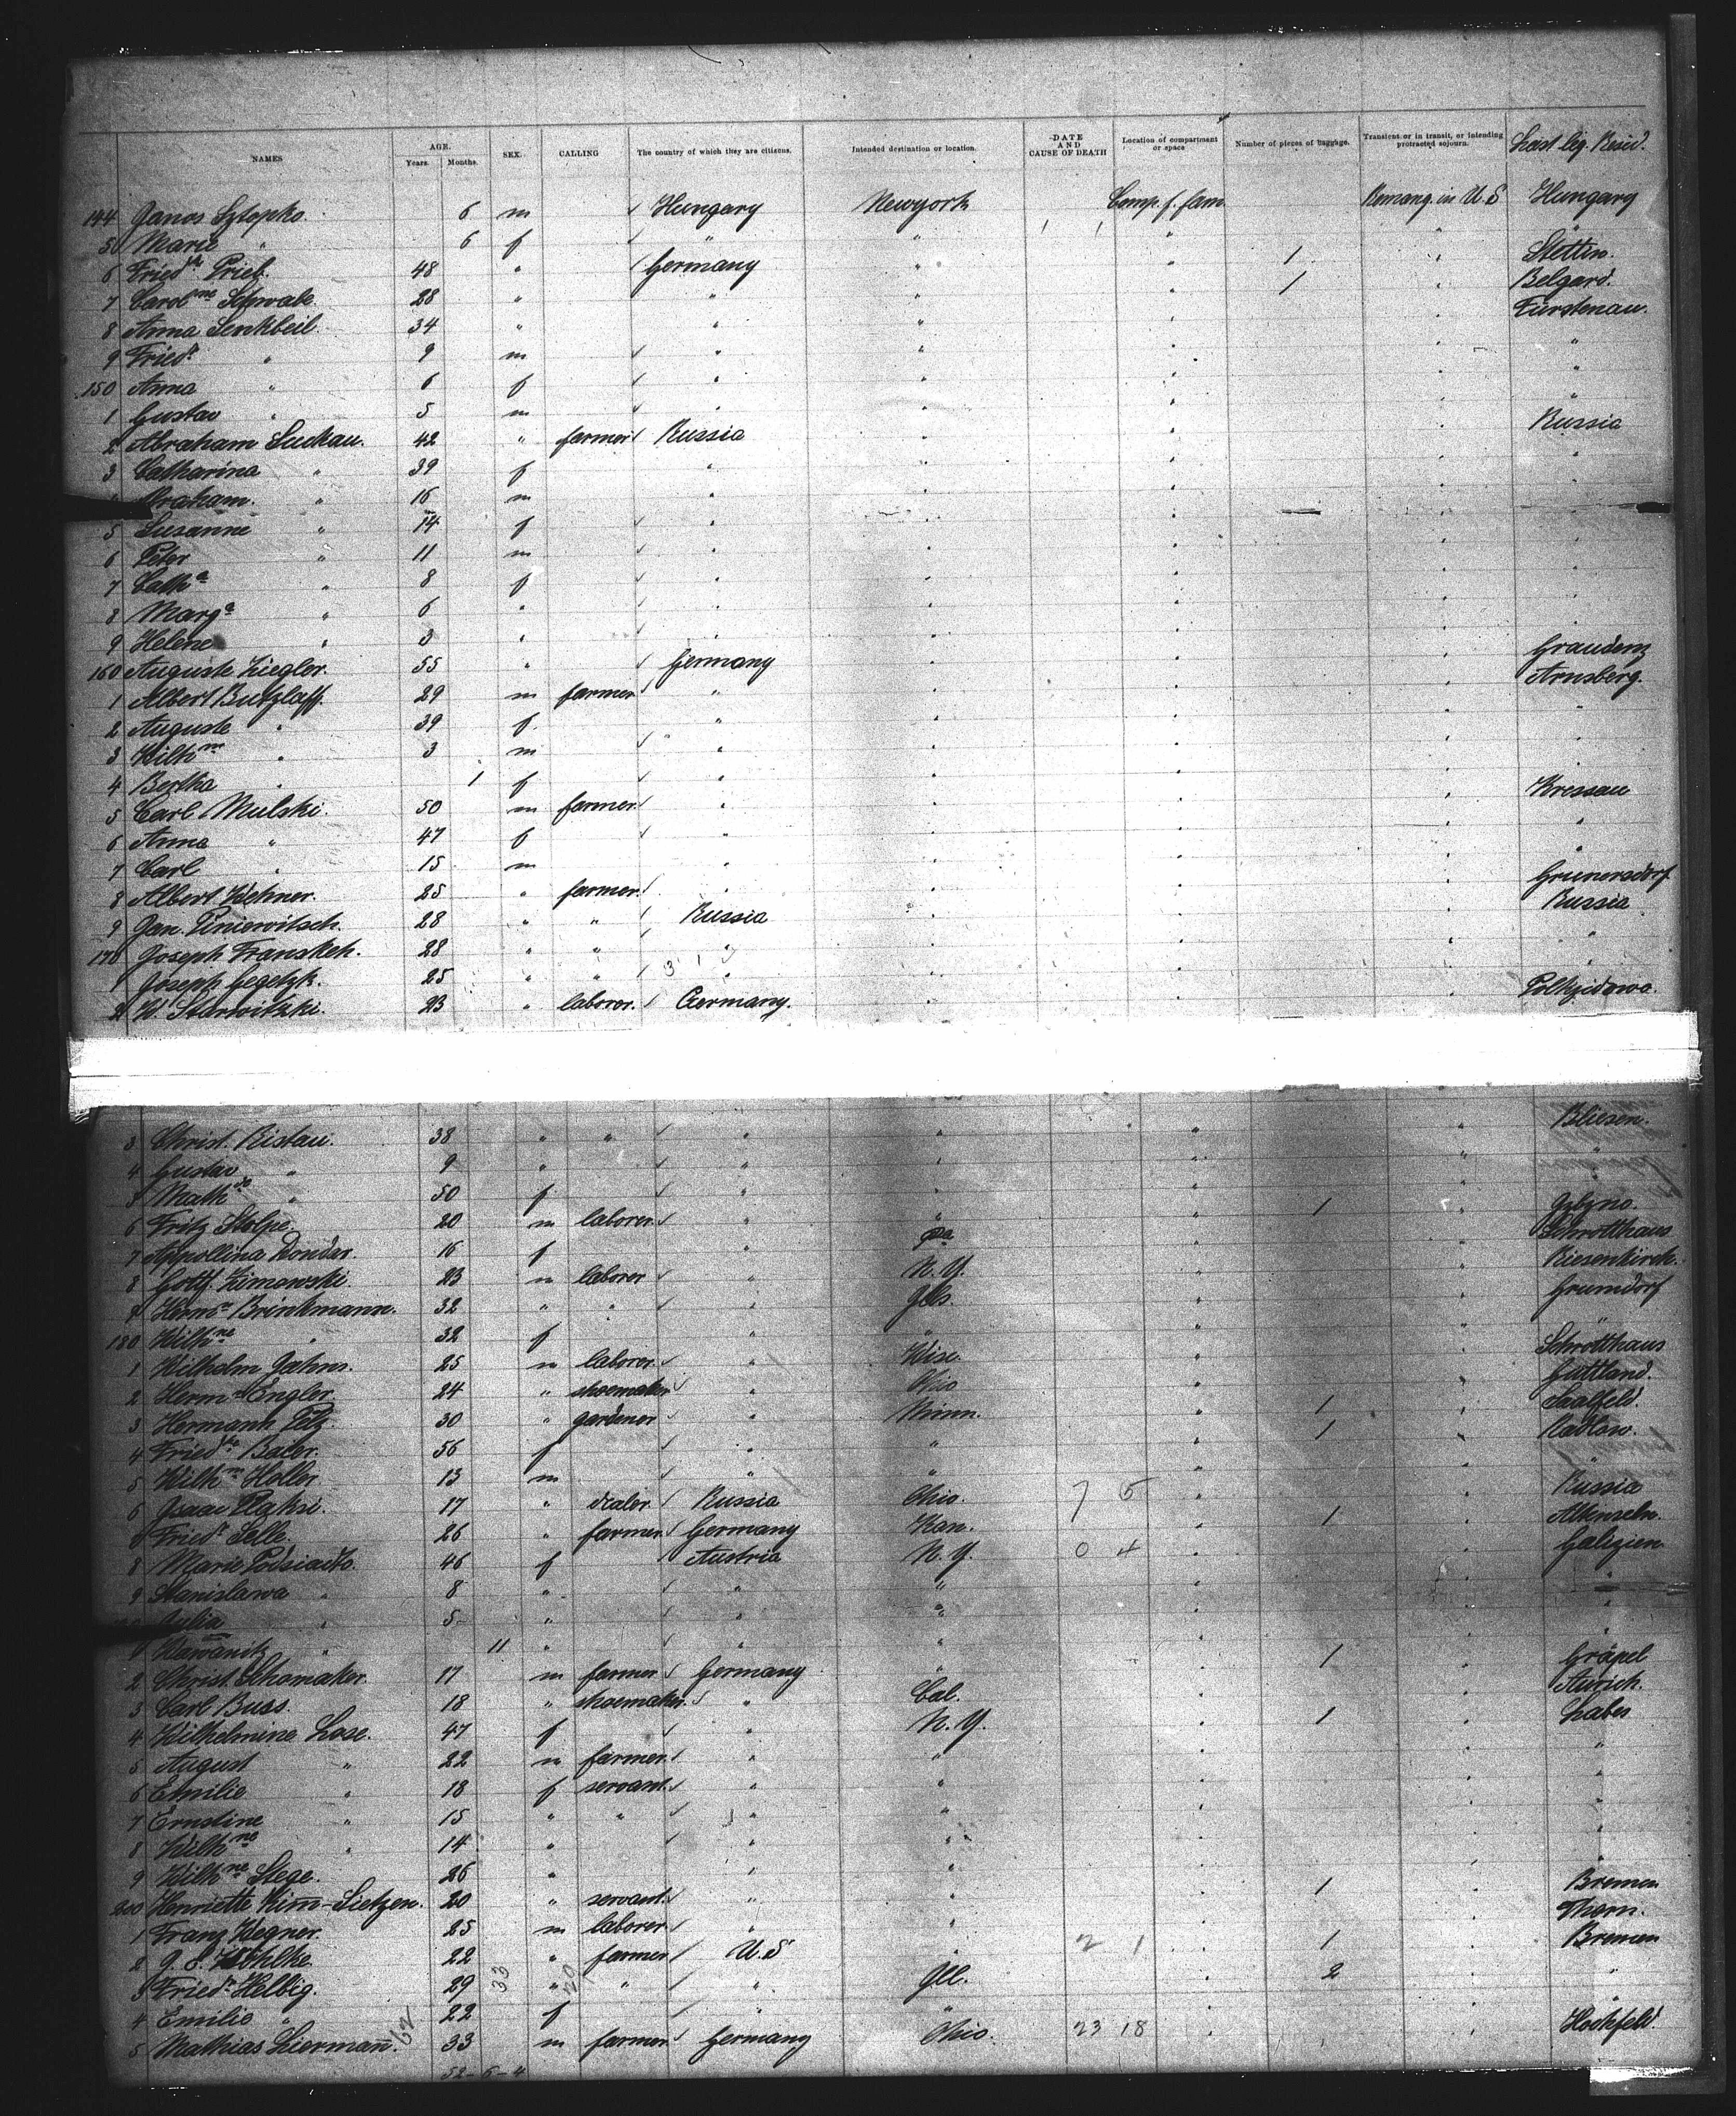 NAMES AGE. Years. Months. SEX. CALLING The country of which they are citizens. Intended destination or location. DATE AND CAUSE OF DEATH Location of compartment or space Number of pieces of baggage. Transient or in transit, or intending protracted sojourn. Last leg. Resid.
144 Janos Sztopko. 6 m ✓ Hungary Newyork Comp. f. fam Remang. in U.S Hungary
50 Marie " 6 f ✓ " " " " "
6 Fried ke Prieb. 48 " Germany " " 1 " Stettin.
7 Carol ne Schwabe. 28 " " " " 1 " Belgard.
8 Anna Senkbeil 34 " " " " " Fürstenau.
9 Fried. " 9 m ✓ " " " " "
150 Anna " 6 f ✓ " " " " "
1 Gustav " 5 m ✓ " " " " "
2 Abraham Suckau. 42 " farmer Russia " " " Russia
3 Catharina " 39 f " " " " "
Abraham. " 16 m " " " "
5 Susanne " 14 f ✓ " " " "
6 Peter " 11 m ✓ " " " "
7 Cath a " 8 f ✓ " " " "
8 Marg a " 6 " ✓ " " " "
9 Helene " 3 " ✓ " " " "
160 Auguste Ziegler. 55 " ✓ Germany " " " Graudenz
1 Albert Butzlaff. 29 m farmer " " " " Arnsberg.
2 Auguste " 39 f. " " " " "
3 Wilh m " 3 m ✓ " " " " "
4 Bertha " 1 f ✓ " " " " "
5 Carl Mulski. 50 m farmer ✓ " " " " Kressau
6 Anna " 47 f ✓ " " " " "
7 Carl " 15 m " " " " "
8 Albert Wehner. 25 " farmer. ✓ " " " " Grunersdorf
9 Jan. Piniewitsch. 28 " " Russia " " " Russia
170 Joseph Franskeh. 28 " " " " " " "
Joseph Gegetzk. 25 " " " " " " "
2 W. Starwitzki. 23 " laborer. Germany. " " "
3 Christ. Ristau. 38 " " ✓ " " " " Bliesen.
4 Gustav " 9 " ✓ " " " " "
5 Math de " 50 f ✓ " " " " "
6 Fritz Stolpe. 20 m laborer ✓ " " " 1 "
7 Appollina Dondar. 16 f " Pa " " Schrotthaus
8 Gottf. Zimowski. 23 m laborer ✓ " N.Y. " " Riesenkirch.
9 Herm n Brinkmann. 32 " " ✓ " " " Grumdorf
180 Wilh ne " 32 f " " " " "
1 Wilhelm Jahns. 25 m laborer. ✓ " Wisc. " " Schrotthaus
2 Herm n Engler. 24 " shoemaker ✓ " Ohio " " Guttland.
3 Hermann Pilz. 30 " gardener ✓ " Minn. " 1 " Saalfeld.
4 Fried ke Bader. 56 f ✓ " " " 1 " Rablow.
5 Wilh m Holler 13 m ✓ " " " " "
6 Isaac 17 " dealer. Russia Ohio. 7 5 " " Russia
Fried. Selle. 26 " farmer. Germany Kan. " 1 "
8 Marie 46 f Austria N.Y. 0 4 " " Galizien
9 Stanislawa " 8 " ✓ " " " " "
Julia " 5 " ✓ " " " " "
" 11 " ✓ " " " " "
2 Christ. Schomaker. 17 m farmer ✓ Germany " " 1 " Gräpel
3 Carl Buss. 18 " shoemaker. ✓ " Cal. " " Aurich.
4 Wilhelmine Lose. 47 f ✓ " N.Y. " 1 " Labes
5 August " 22 m farmer. ✓ " " " " "
6 Emilie " 18 f servant. ✓ " " " " "
7 Ernstine " 15 " " ✓ " " " " "
8 Wilh ne " 14 " ✓ " " " " "
9 Wilh ne Stege. 26 " " " " "
200 Henriette Kim-Sietzen. 20 " servant. ✓ " " " 1 " Bremen
1 Franz Wegner. 25 m laborer ✓ " " " " Thorn.
2 22 " farmer U.S " 2 1 " 1 " Bremen
3 Fried. Helbig. 29 33 " " " Ill. " 2 " "
4 Emilie " 22 f ✓ " " " " "
5 Mathias Liermann. 62 33 m farmer ✓ Germany Ohio. 23 18 " " Hochfeld.
52-6-4